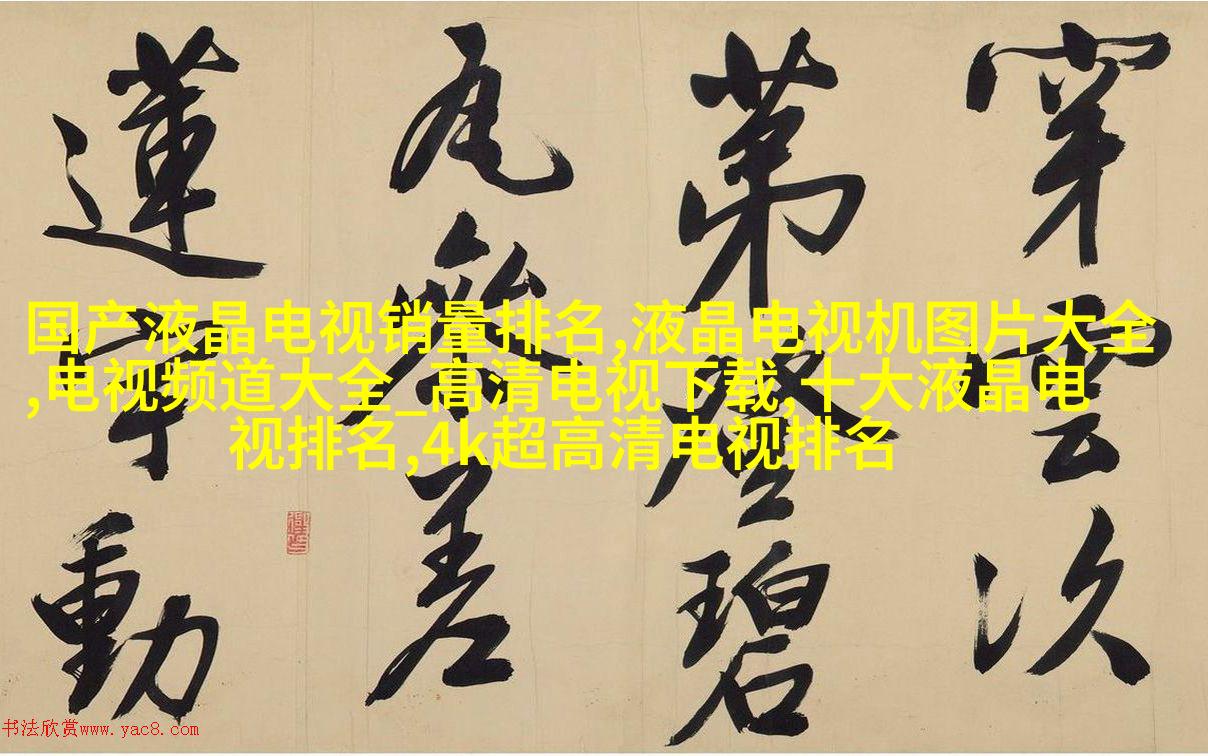 穿雲次
苐登碧
瓦參差
蓮宇動
国产液晶电视销量排名,液晶电视机图片大全
,电视频道大全_高清电视下载,十大液晶电
视排名,4k超高清电视排名
书法欣赏www.yac8.com